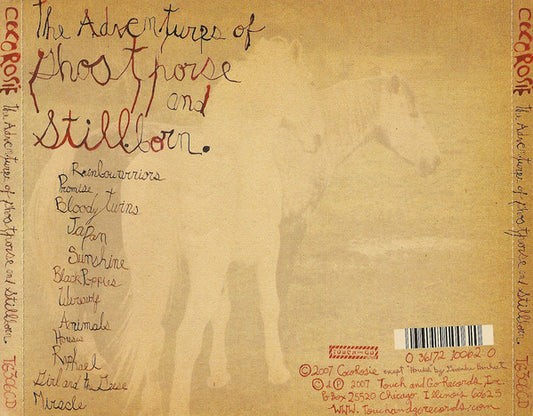 The Adventures of
Ghosthorse
and
Stillborn.
Rainbowarriors
Promise
Bloody Twins
Japan
Sunshine
Black Poppies
Werewolf
Animals
Houses
Raphael
Girl and the Geese
Miracle
COCOROSIE The Adventures of Ghosthorse and Stillborn. TG306CD
COCOROSIE The Adventures of Ghosthorse and Stillborn. TG306CD
TOUCH AND GO
0 36172 10062 0
©2007 CocoRosie except "Houses" by Devendra Banhart
© & ℗ 2007 Touch and Go Records, Inc.
Po Box 25520 Chicago, Illinois 60625
WWW. Touchandgorecords.com